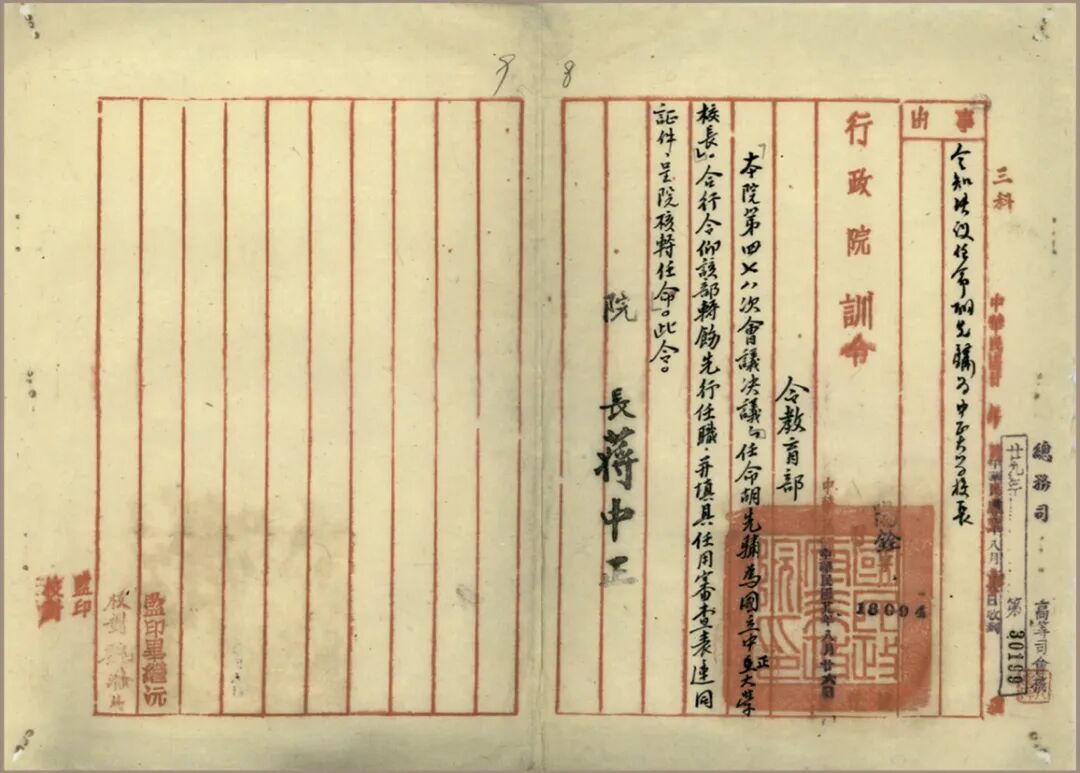 總務司 高等司會擬
廿九年 第30199
三科
事由
令知決议任命胡先驌为中正大学校長
行政院訓令
18094
中華民國廿九年八月廿六日
令教育部
「本院第四七八次會議決議：『任命胡先驌為國立中正大學
校長』。合行令仰該部轉飭先行任職，并填具任用審查表連同
証件，呈院核轉任命」。此令。
院 長 蔣中正
監印
校對
監印畢繼沅
校對